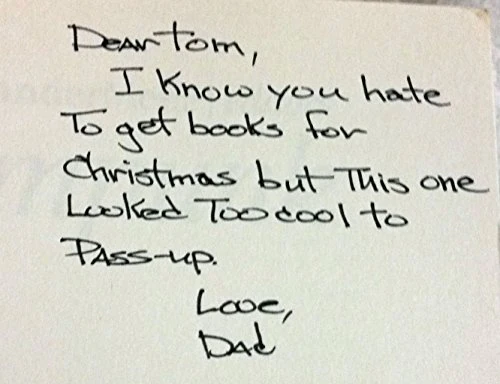 Dear Tom,
I know you hate
To get books for
Christmas but This one
Looked Too cool to
Pass-up.
Love,
Dad